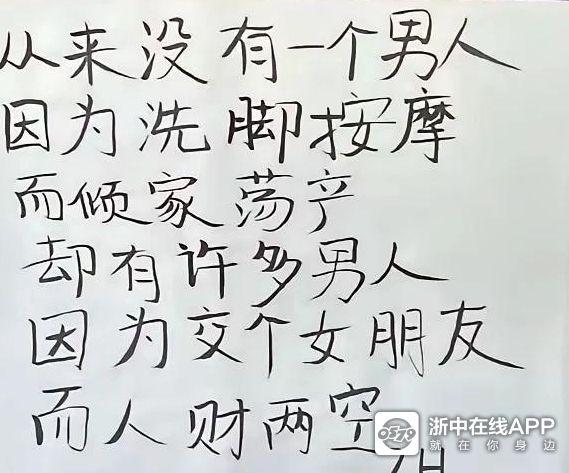 从来没有一个男人
因为洗脚按摩
而倾家荡产
却有许多男人
因为交个女朋友
而人财两空
浙中在线APP
就在你身边